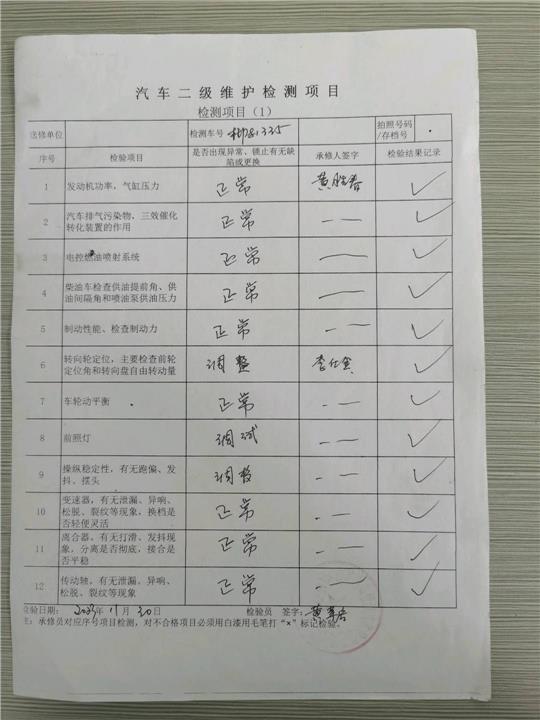 汽车二级维护检测项目
检测项目（1）
送修单位 检测车号 拍照号码/存档号
序号 检验项目 是否出现异常、锁止有无缺陷或更换 承修人签字 检验结果记录
1 发动机功率，气缸压力 正常 ✓
2 汽车排气污染物，三效催化转化装置的作用 正常 — — ✓
3 电控燃油喷射系统 正常 — — ✓
4 柴油车检查供油提前角、供油间隔角和喷油泵供油压力 正常 — — ✓
5 制动性能、检查制动力 正常 — — ✓
6 转向轮定位，主要检查前轮定位角和转向盘自由转动量 调整 ✓
7 车轮动平衡 正常 — — ✓
8 前照灯 调试 — — ✓
9 操纵稳定性，有无跑偏、发抖、摆头 调整 — — ✓
10 变速器，有无泄漏、异响、松脱、裂纹等现象，换档是否轻便灵活 正常 — — ✓
11 离合器，有无打滑、发抖现象，分离是否彻底，接合是否平稳 正常 — — ✓
12 传动轴，有无泄漏、异响、松脱、裂纹等现象 正常 — — ✓
检验日期： 2023年 11月 30日 检验员 签字：
注：承修员对应序号项目检测，对不合格项目必须用白漆用毛笔打“×”标记检验。